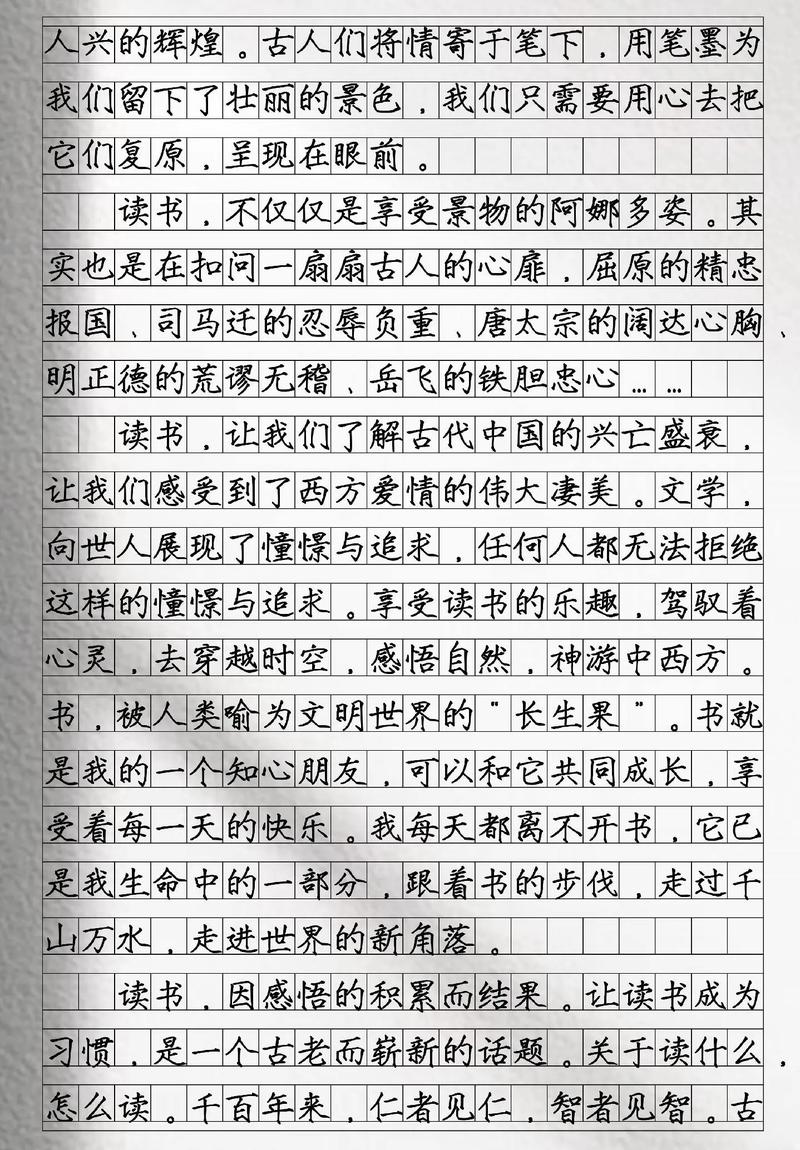 人兴的辉煌。古人们将情寄于笔下，用笔墨为
我们留下了壮丽的景色，我们只需要用心去把
它们复原，呈现在眼前。
读书，不仅仅是享受景物的阿娜多姿。其
实也是在扣问一扇扇古人的心扉，屈原的精忠
报国、司马迁的忍辱负重、唐太宗的阔达心胸、
明正德的荒谬无稽、岳飞的铁胆忠心……
读书，让我们了解古代中国的兴亡盛衰，
让我们感受到了西方爱情的伟大凄美。文学，
向世人展现了憧憬与追求，任何人都无法拒绝
这样的憧憬与追求。享受读书的乐趣，驾驭着
心灵，去穿越时空，感悟自然，神游中西方。
书，被人类喻为文明世界的"长生果"。书就
是我的一个知心朋友，可以和它共同成长，享
受着每一天的快乐。我每天都离不开书，它已
是我生命中的一部分，跟着书的步伐，走过千
山万水，走进世界的新角落。
读书，因感悟的积累而结果。让读书成为
习惯，是一个古老而崭新的话题。关于读什么，
怎么读。千百年来，仁者见仁，智者见智。古